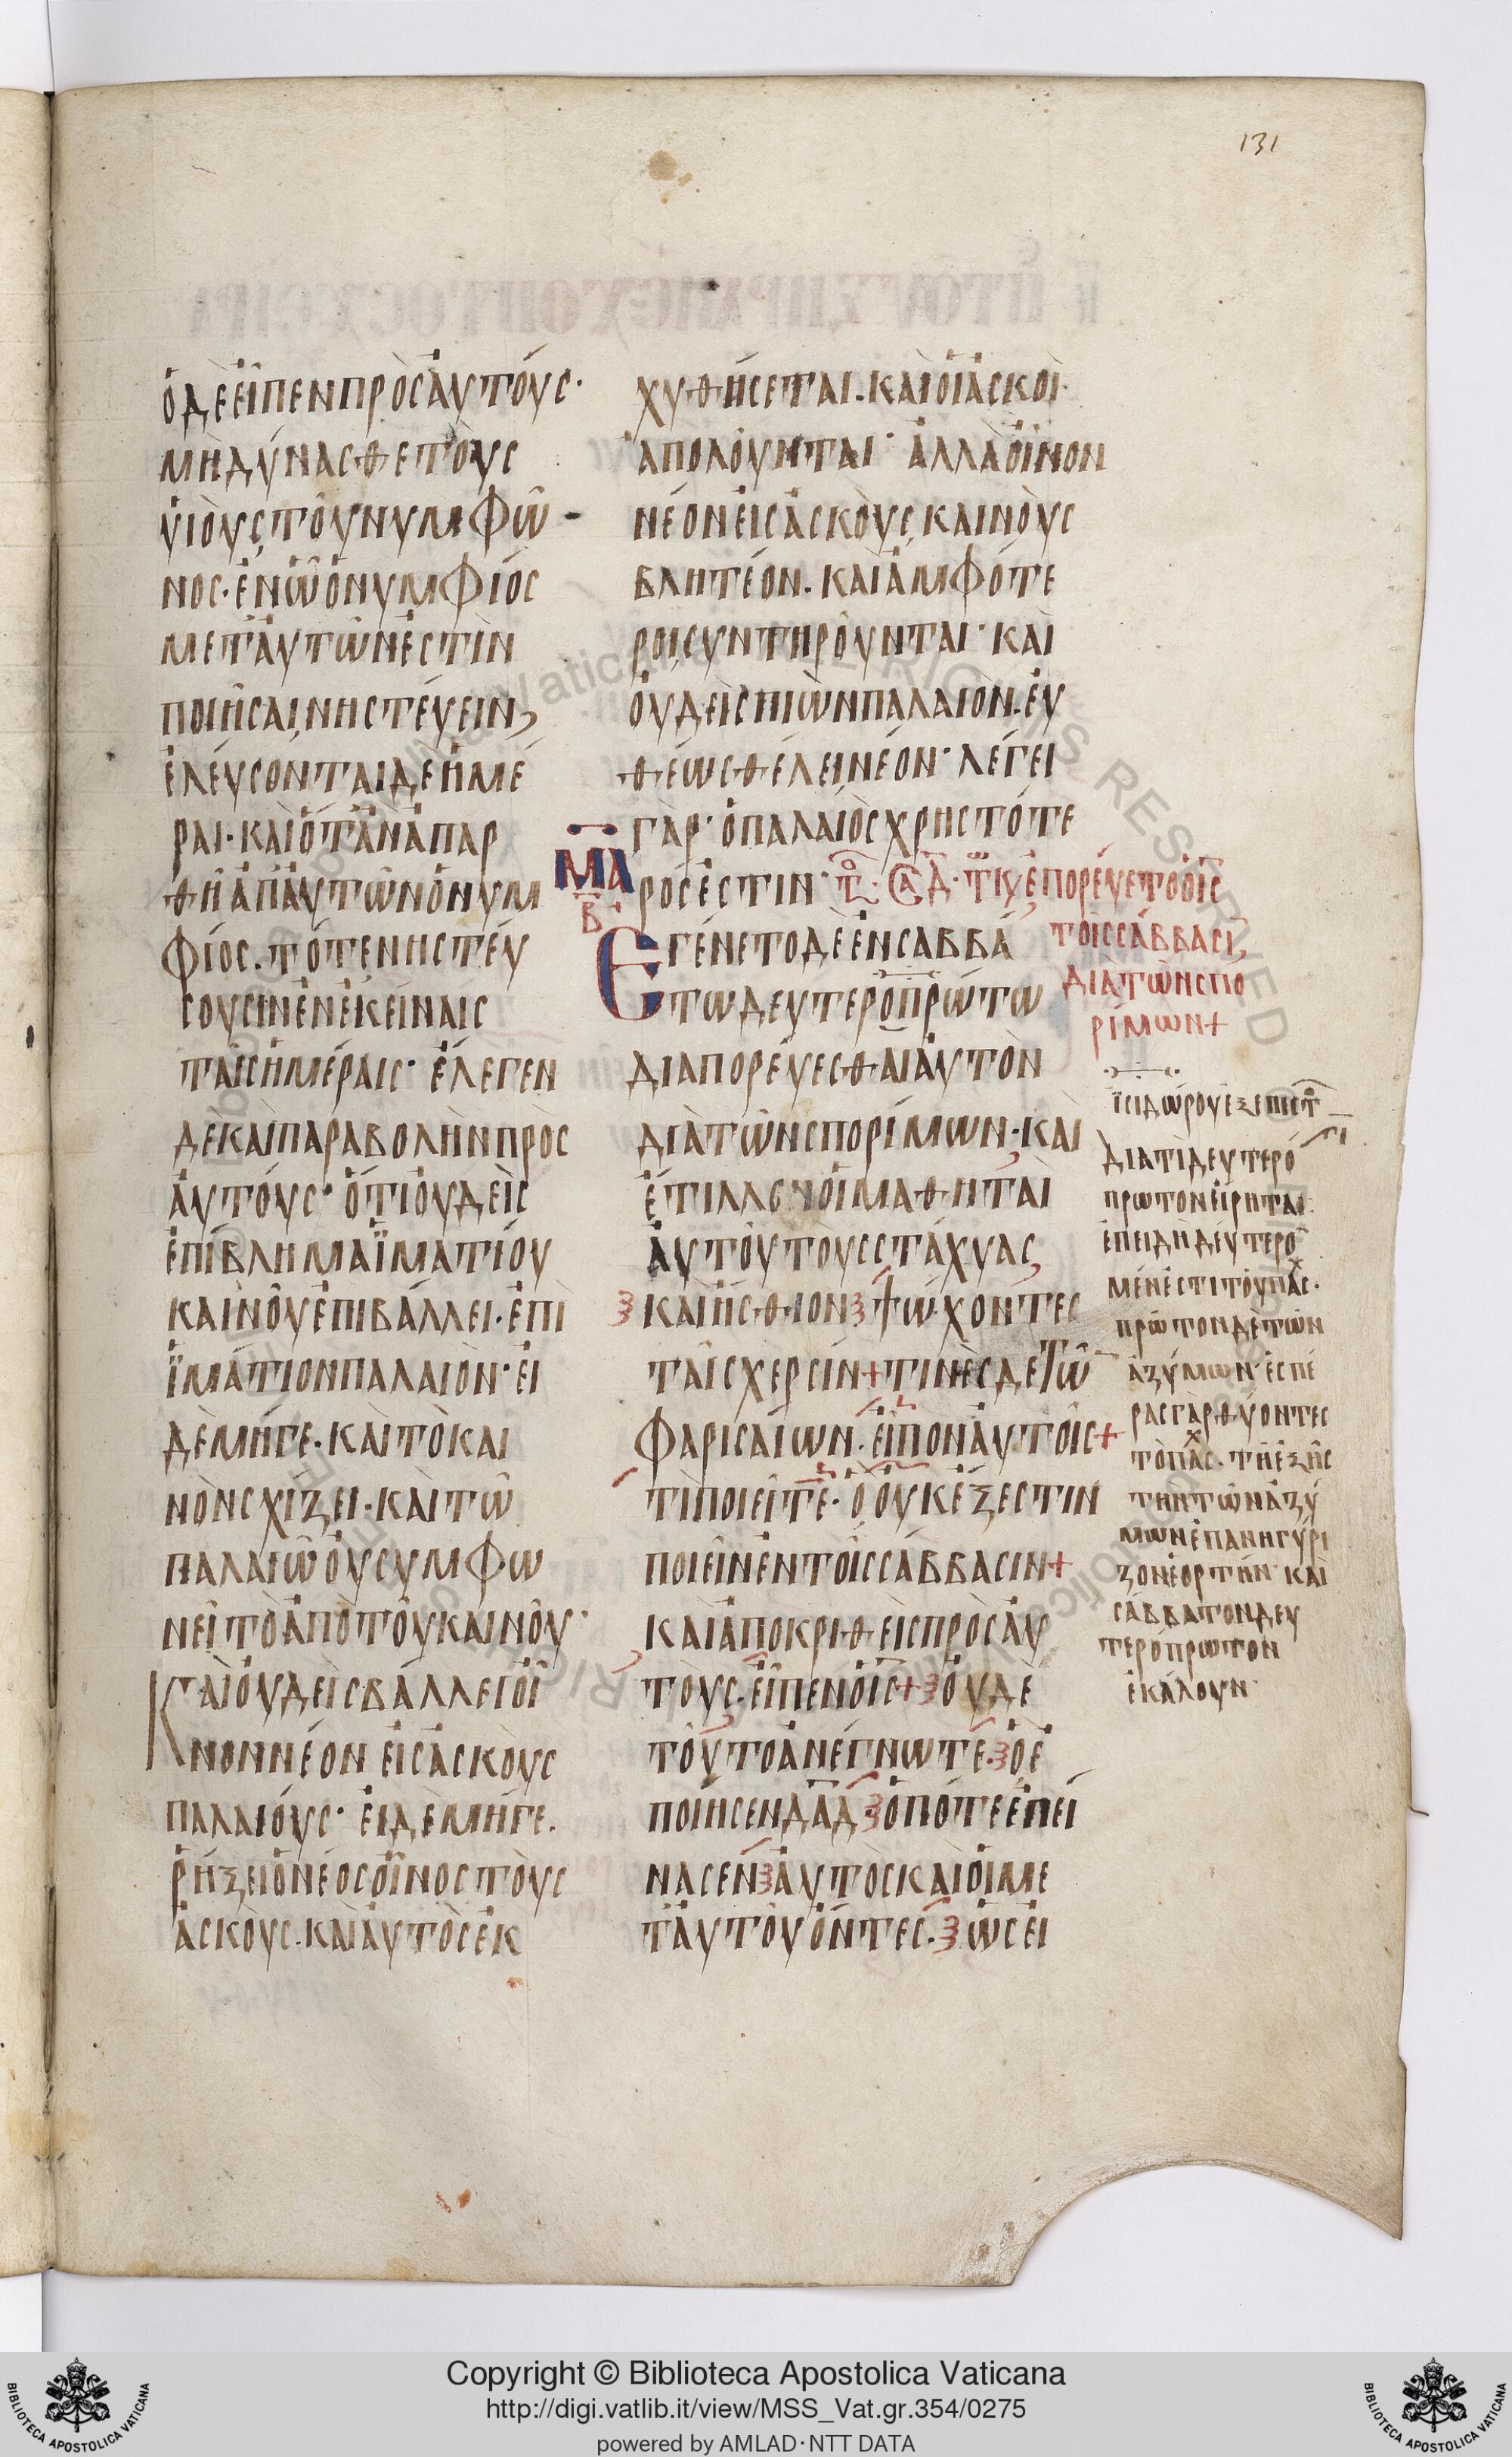 131
ὁ δὲ εἶπεν πρὸς αὐτούς·
μὴ δύνασθε τοὺς
υἱοὺς τοῦ νυμφῶ
νος· ἐν ᾧ ὁ νυμφίος
μετ' αὐτῶν ἐστὶν
ποιῆσαι νηστεύειν,
ἐλεύσονται δὲ ἡμέ
ραι· καὶ ὅταν ἀπαρ
θῇ ἀπ' αὐτῶν ὁ νυμ
φίος. τότε νηστεύ
σουσιν ἐν ἐκείναις
ταῖς ἡμέραις· ἔλεγεν
δὲ καὶ παραβολὴν πρὸς
αὐτούς· ὅτι οὐδεὶς
ἐπίβλημα ϊματίου
καινοῦ ἐπιβάλλει· ἐπὶ
ϊμάτιον παλαιὸν· εἰ
δὲ μήγε· καὶ τὸ και
νὸν σχίζει· καὶ τῶ
παλαιῶ οὐ συμφω
νεῖ τὸ ἀπὸ τοῦ καινοῦ·
Καὶ οὐδεὶς βάλλει οἶ
νον νέον εἰς ἀσκοὺς
παλαιούς· εἰ δὲ μήγε.
ῥήξει ὁ νέος οἶνος τοὺς
ἀσκοὺς. καὶ αὐτὸς ἐκ
χυθήσεται. καὶ οἱ ἀσκοὶ·
ἀπολοῦνται· ἀλλὰ οἶνον
νέον εἰς ἀσκοὺς καινοὺς
βλητέον. καὶ ἀμφότε
ροι συντηροῦνται· καὶ
οὐδεὶς πιὼν παλαιὸν. εὐ
θέως θέλει νέον· λέγει
γὰρ· ὁ παλαιὸς χρηστότε
ρός ἐστιν·
ἐπορεύετο ὁ ις
τοῖς σάββασι,
διὰ τῶν σπο
ρίμων+
Ἐγένετο δὲ ἐν σαββά
τω δευτεροπρώτω
διαπορεύεσθαι αὐτὸν
διὰ τῶν σπορίμων· καὶ
ἔτιλλον οἱ μαθηταὶ
αὐτοῦ τοὺς στάχυας,
καὶ ἤσθιον ψώχοντες
ταῖς χερσίν+ τινὲς δὲ τῶ
φαρισαίων· εἶπον αὐτοῖς+
τί ποιεῖτε· ὃ οὐκ ἔξεστιν
ποιεῖν ἐν τοῖς σάββασιν+
καὶ ἀποκριθεὶς πρὸς αὐ
τοὺς· εἶπεν ὁ ις+ οὐδὲ
τοῦτο ἀνέγνωτε· ὃ ἐ
ποίησεν δαδ ὁπότε ἐπεί
νασεν αὐτὸς καὶ οἱ με
τ' αὐτοῦ ὄντες. ὡς εἰ
ϊσιδώρου ἐξ ἐπιστ
διατί δευτερό
πρωτον εἴρηται
ἐπειδὴ δεύτερο
μέν ἐστι τοῦ πασχ·
πρῶτον δὲ τῶν
ἀζύμων· ἑσπέ
ρας γὰρ θύοντες
τὸ πασχ· τῇ ἑξῆς
τὴν τῶν ἀζύ
μων ἐπανηγύρι
ζον ἑορτήν· καὶ
σάββατον δευ
τερόπρωτον
ἐκάλουν·
Copyright © Biblioteca Apostolica Vaticana
http://digi.vatlib.it/view/MSS_Vat.gr.354/0275
powered by AMLAD·NTT DATA